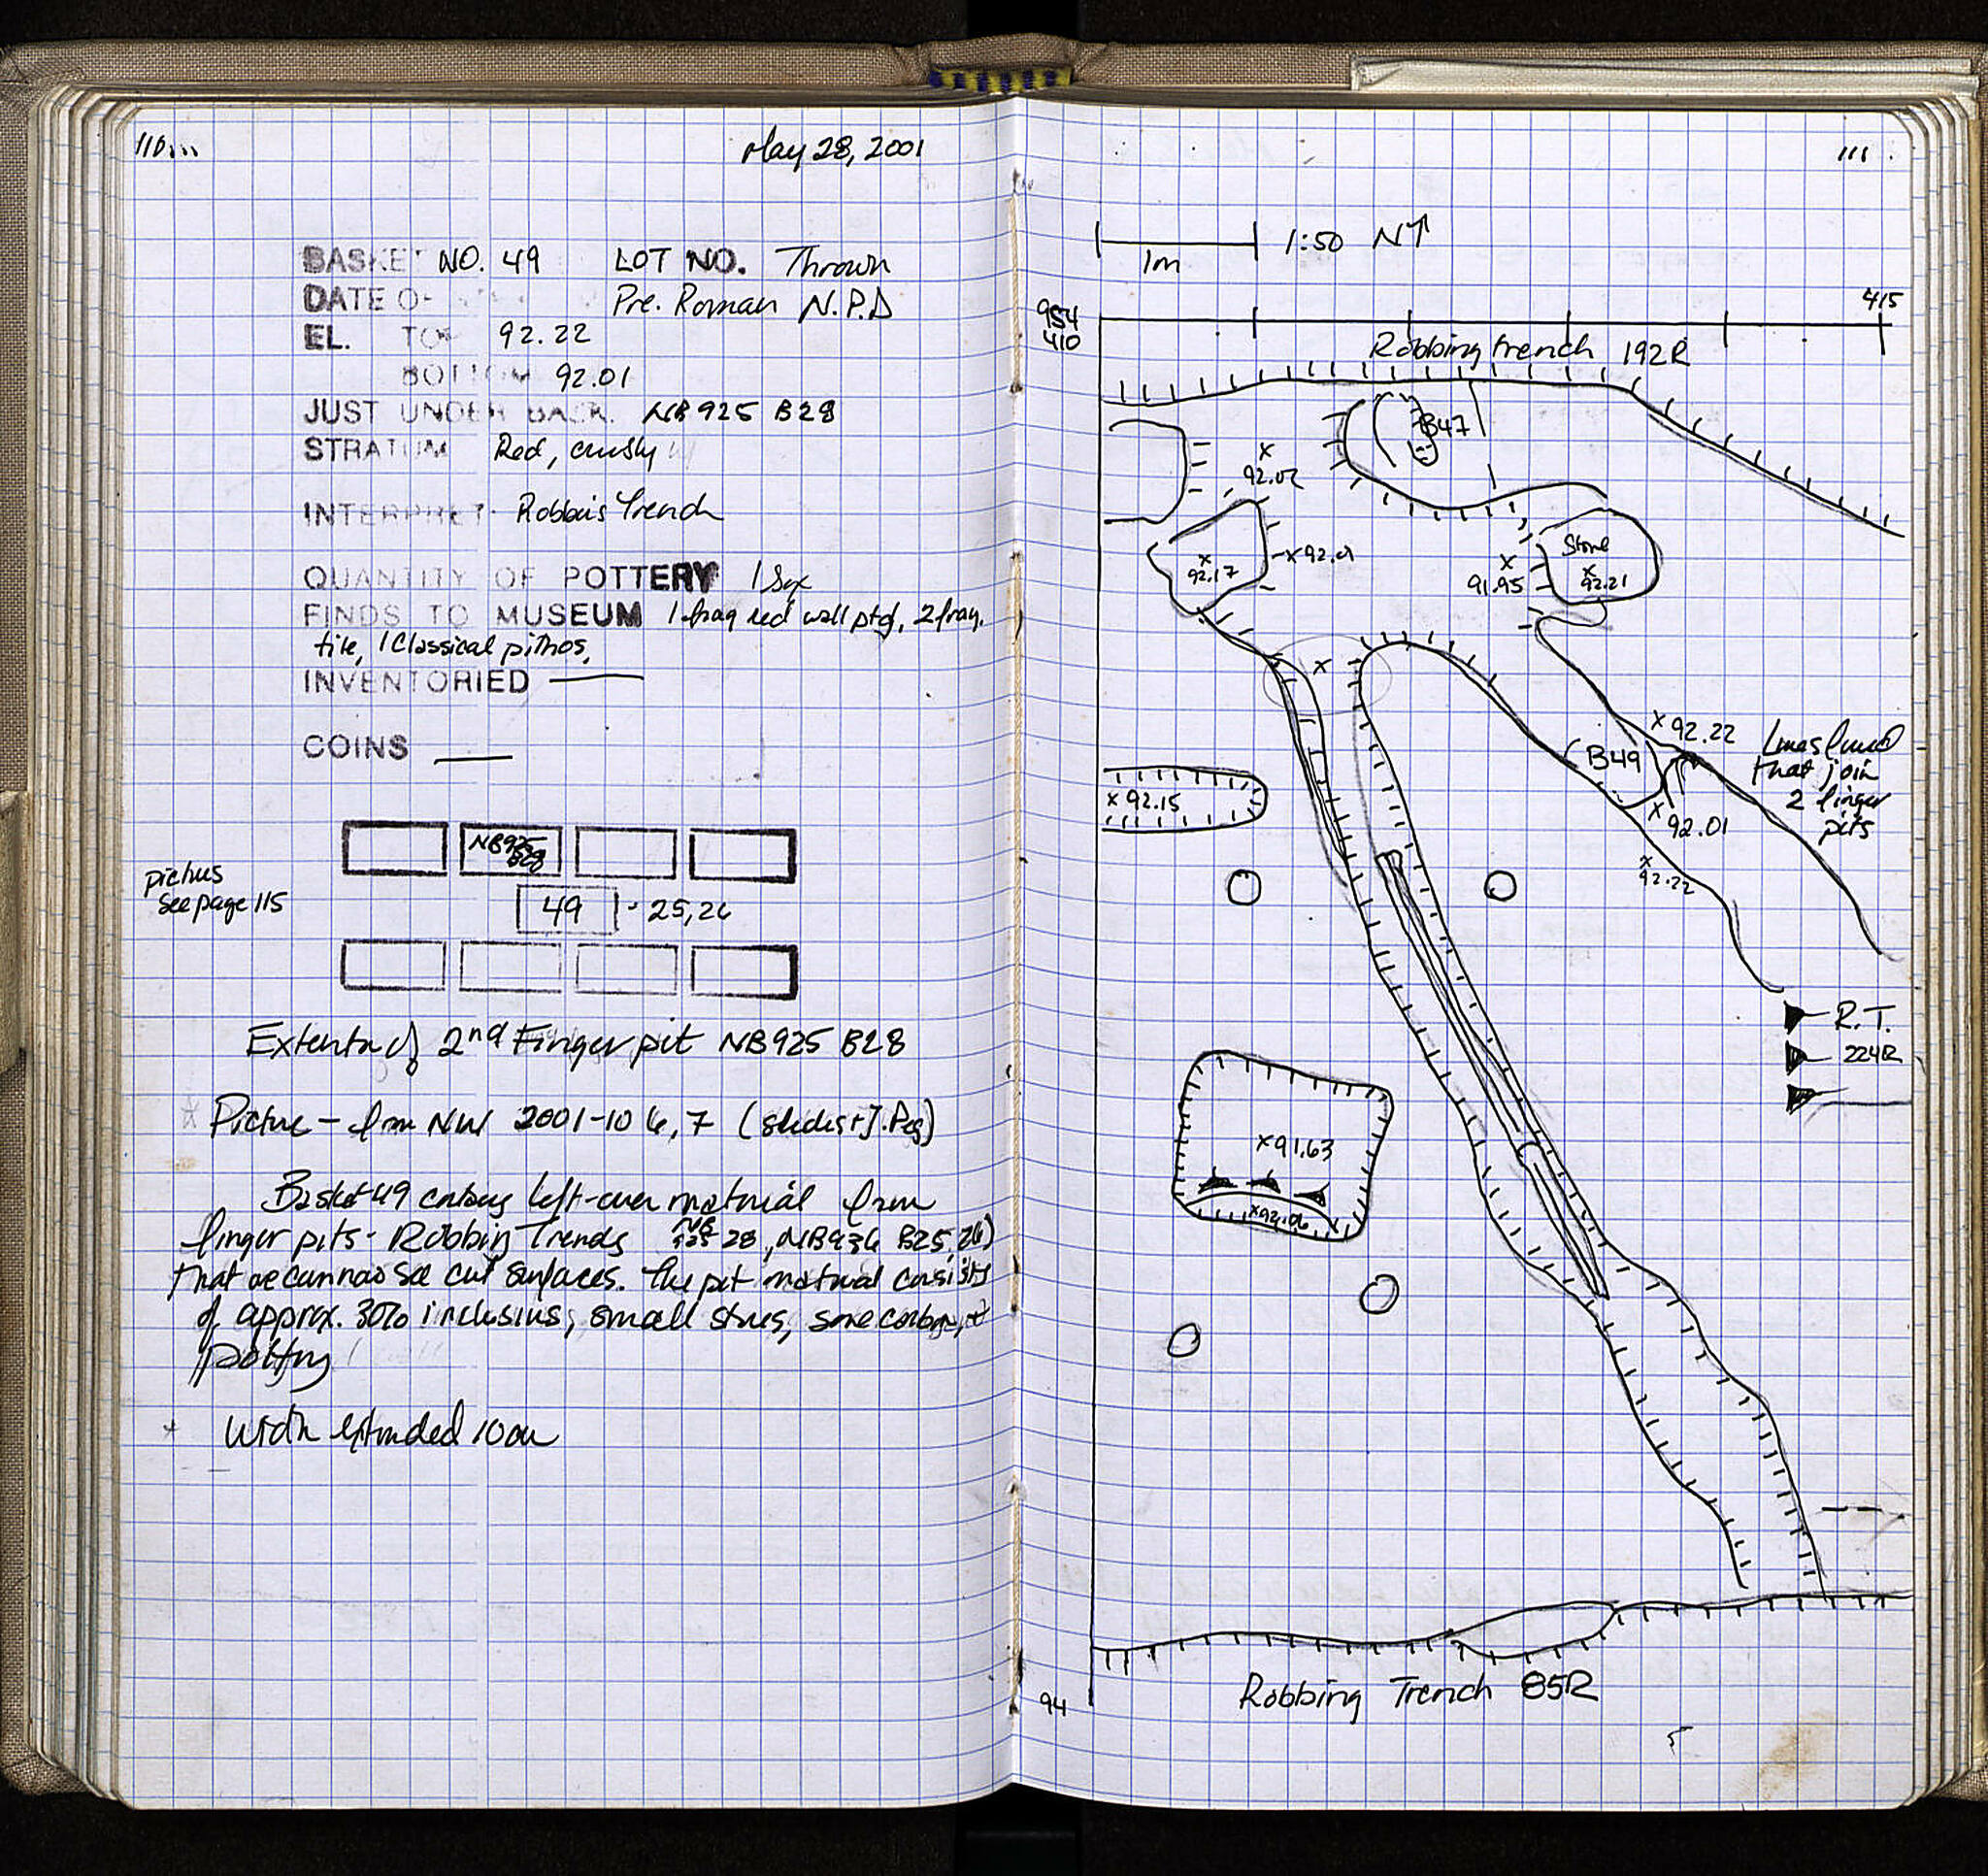 110
May 28, 2001
BASKET NO. 49 LOT NO. Thrown
DATE O Pre. Roman N.P.D
EL. TOP 92.22
BOTTOM 92.01
JUST UNDER BASK. NB925 B28
STRATUM Red, crusty
INTERPRET. Robbing Trench
QUANTITY OF POTTERY 1
FINDS TO MUSEUM 1 frag red wall ptg, 2 frag.
tile, 1 Classical pithos,
INVENTORIED —
COINS —
NB925
B28
pictures
see page 115
49 25, 26
Extent of 2nd Finger pit NB925 B28
Picture – from NW 2001-10 6, 7 (slides + J.Peg)
Basket 49 contains left-over material from
finger pits - Robbing Trends NB 925 28, NB936 B25, 26)
that we can now see cut surfaces. The pit material consists
of approx. 30% inclusions, small stones, some carbon, +
pottery
* Width extended 10cm
111
1:50 N↑
1m
954
410
415
Robbing trench 192R
B47
x
92.02
Stone
x
92.17
x 92.01
x
91.95
x
92.21
x
x 92.22
B49
that join
2 finger
pits
x 92.15
x
92.01
x
92.22
R.T.
224R
x 91.63
x 92.06
94
Robbing Trench 85R